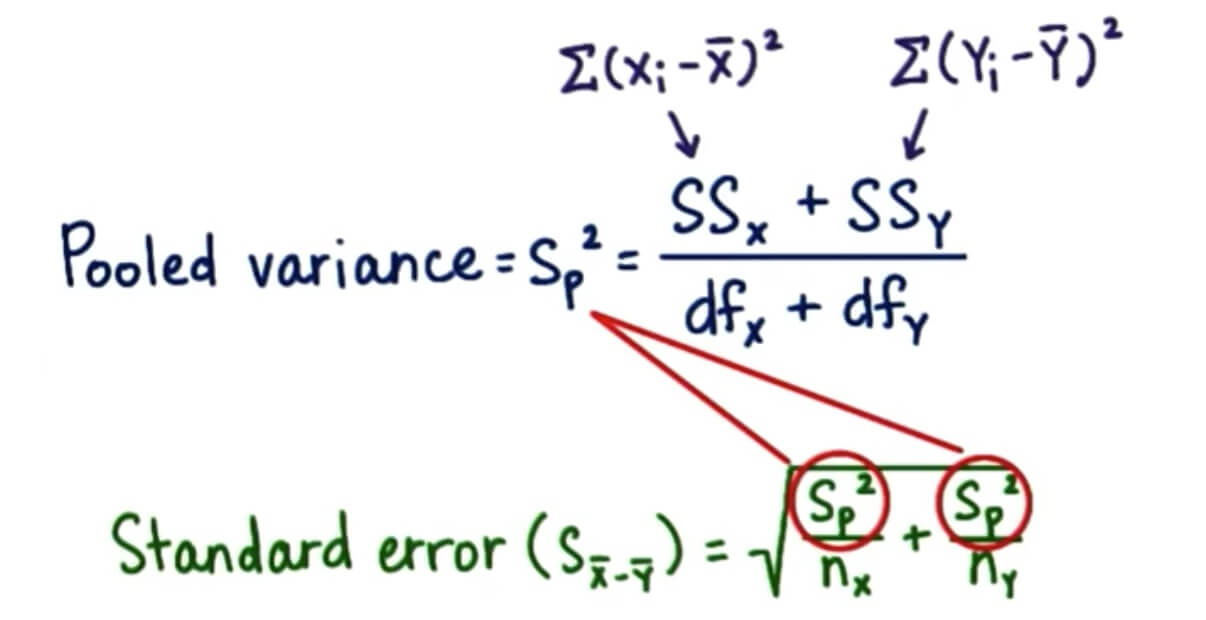 Σ(xᵢ-x̄)² Σ(Yᵢ-Ȳ)²
Pooled variance = Sₚ² = (SSₓ + SS_Y) / (dfₓ + df_Y)
Standard error (S_x̄-Ȳ) = √(Sₚ²/nₓ + Sₚ²/n_Y)